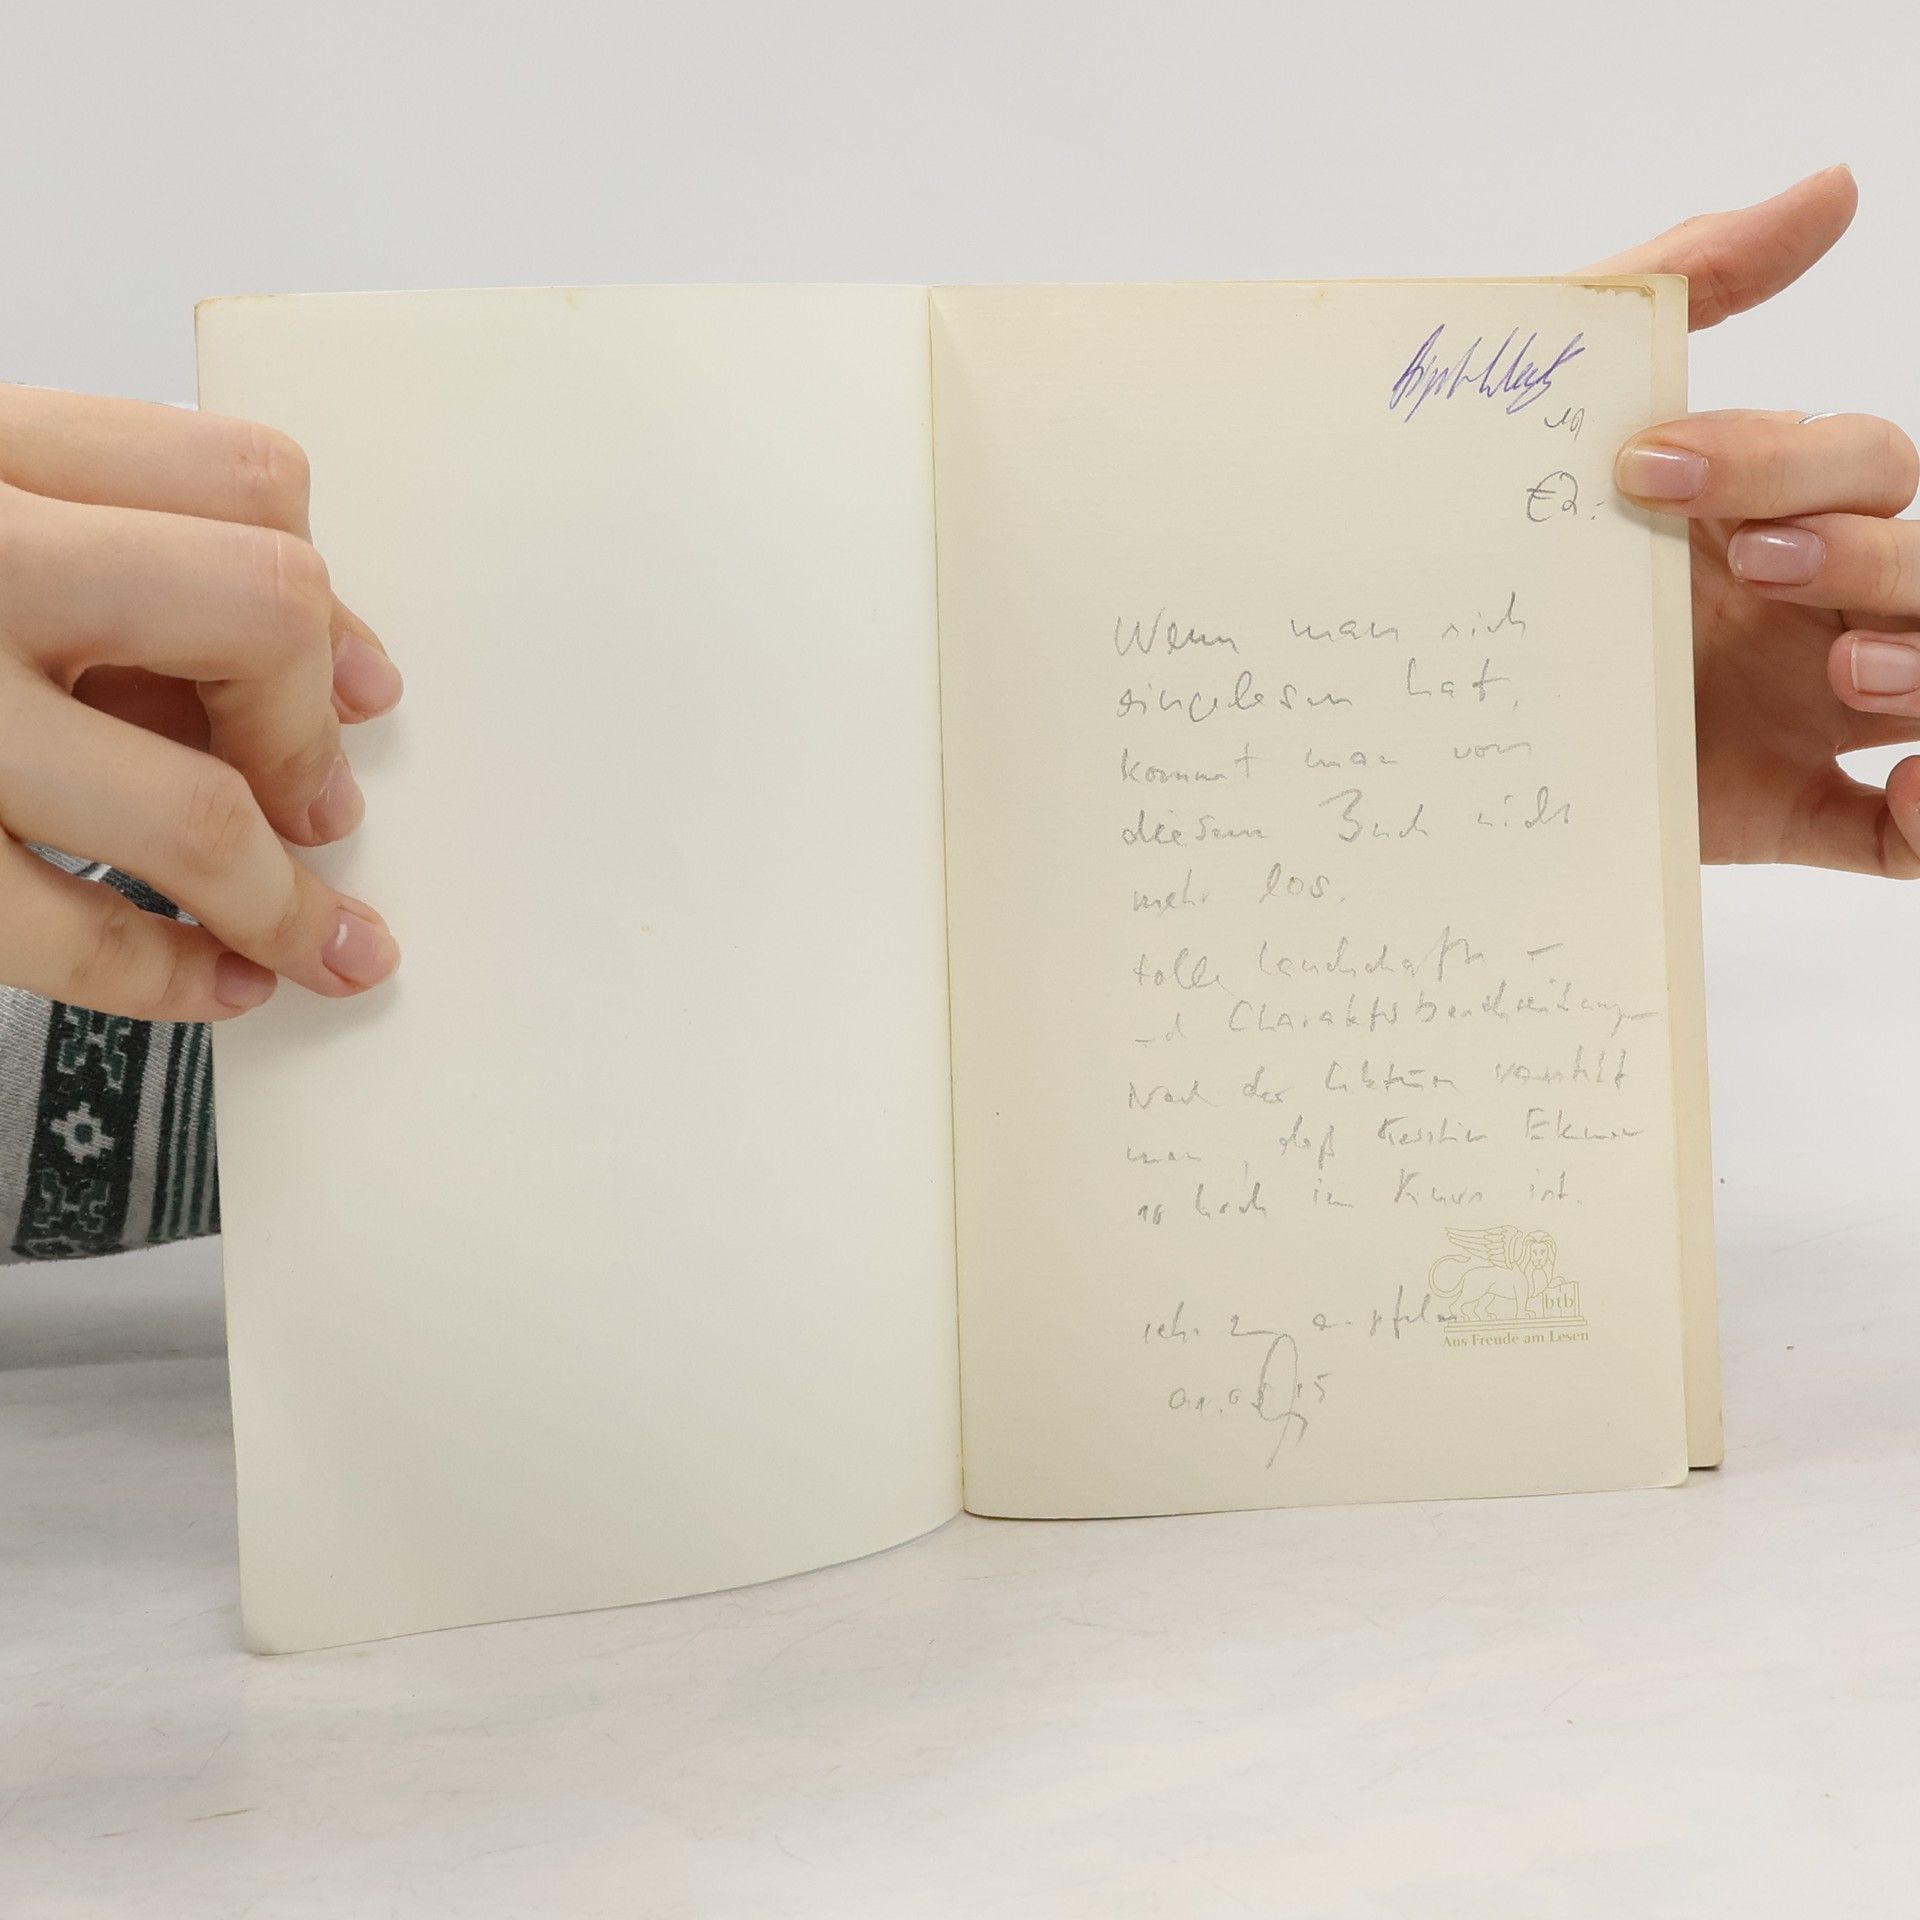 €2.-
Wenn man sich
eingelesen hat,
kommt man von
diesem Buch nicht
mehr los.
tolle Landschafts-
und Charakterbeschreibungen
Nach der Lektüre versteht
man, daß Kerstin Ekman
so hoch im Kurs ist.
sehr zu empfehlen
btb
Aus Freude am Lesen